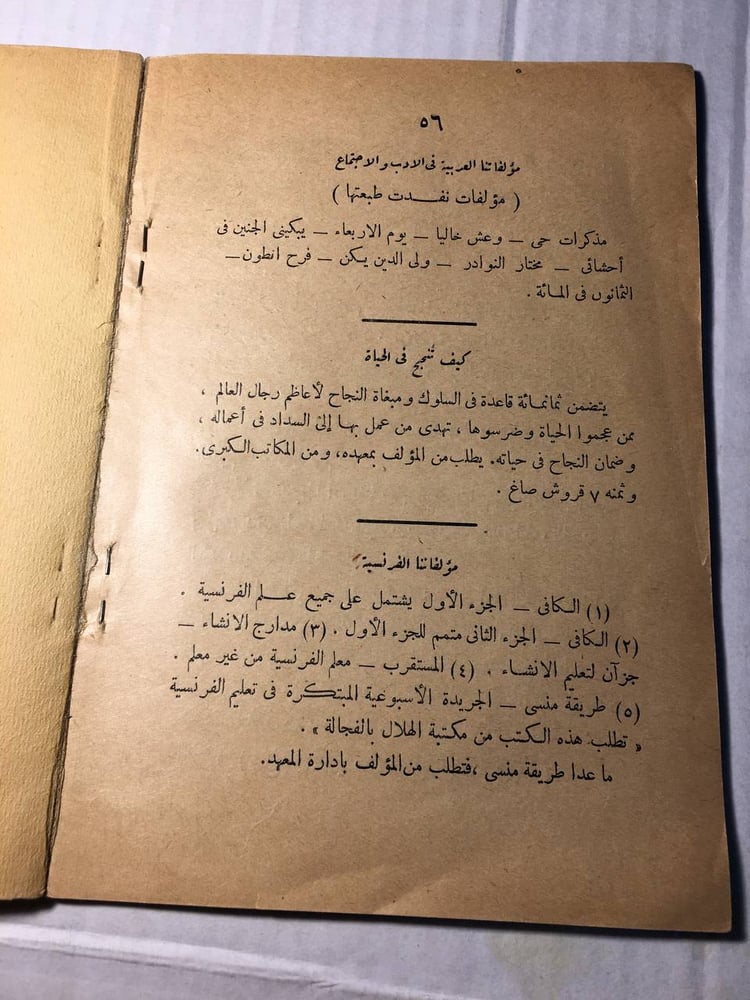 ٥٦
مؤلفاتنا العربية فى الادب والاجتماع
( مؤلفات نفـــدت طبعتها )
مذكرات حى ــ وعش خاليا ــ يوم الاربعاء ــ يبكينى الجنين فى
أحشائى ــ مختار النوادر ــ ولى الدين يـكن ــ فرح انطون ــ
الثمانون فى المـائة .
كيف تُنجح فى الحياة
يتضمن ثمانمـائة قاعدة فى السلوك ومبغاة النجاح لأعاظم رجال العالم ،
ممن عجموا الحياة وضرسوها ، تهدى من عمل بهـا إلى السداد فى أعماله ،
وضمان النجاح فى حياته. يطلب من المؤلف بمعهده، ومن المكاتب الكبرى.
وثمنه ٧ قروش صاغ .
مؤلفاتنا الفرنسية
(١) الـكافى ــ الجزء الأول يشتمل على جميع عـــلم الفرنسية .
(٢) الـكافى ــ الجزء الثانى متمم للجزء الأول . (٣) مدارج الانشاء ــ
جزآن لتعليم الانشـاء . (٤) المستقرب ــ معلم الفرنسية من غير معلم .
(٥) طريقة منسى ــ الجريدة الأسبوعية المبتكرة فى تعليم الفرنسية
« تطلب هذه الـكتب من مكتبة الهلال بالفجالة » .
ما عدا طريقة منسى ،فتطلب من المؤلف بادارة المعهد.